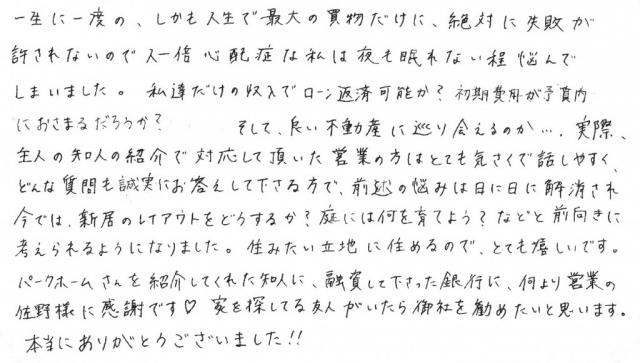 一生に一度の、しかも人生で最大の買物だけに、絶対に失敗が
許されないので人一倍心配症な私は夜も眠れない程悩んで
しまいました。 私達だけの収入でローン返済可能か? 初期費用が予算内
におさまるだろうか? そして、良い不動産に巡り会えるのか…。実際、
主人の知人の紹介で対応して頂いた営業の方はとても気さくで話しやすく、
どんな質問も誠実にお答えして下さる方で、前述の悩みは日に日に解消され
今では、新居のレイアウトをどうするか? 庭には何を育てよう? などと前向きに
考えられるようになりました。住みたい立地に住めるので、とても嬉しいです。
パークホームさんを紹介してくれた知人に、融資して下さった銀行に、何より営業の
佐野様に感謝です♡ 家を探してる友人がいたら御社を勧めたいと思います。
本当にありがとうございました!!